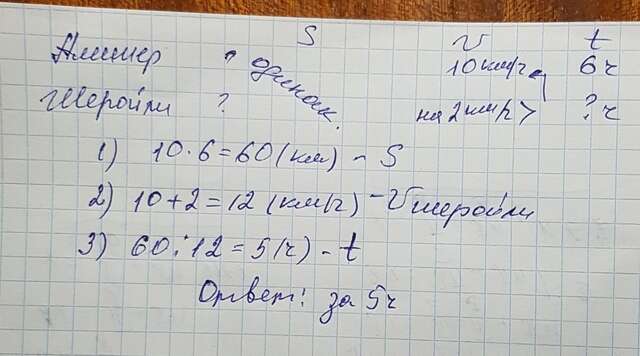 S v t
Алишер ? одинак. 10 км/ч 6ч
Шеройли ? на 2 км/ч > ? ч
1) 10 · 6 = 60 (км) - S
2) 10 + 2 = 12 (км/ч) - v шеройли
3) 60 : 12 = 5 (ч) - t
Ответ: за 5ч